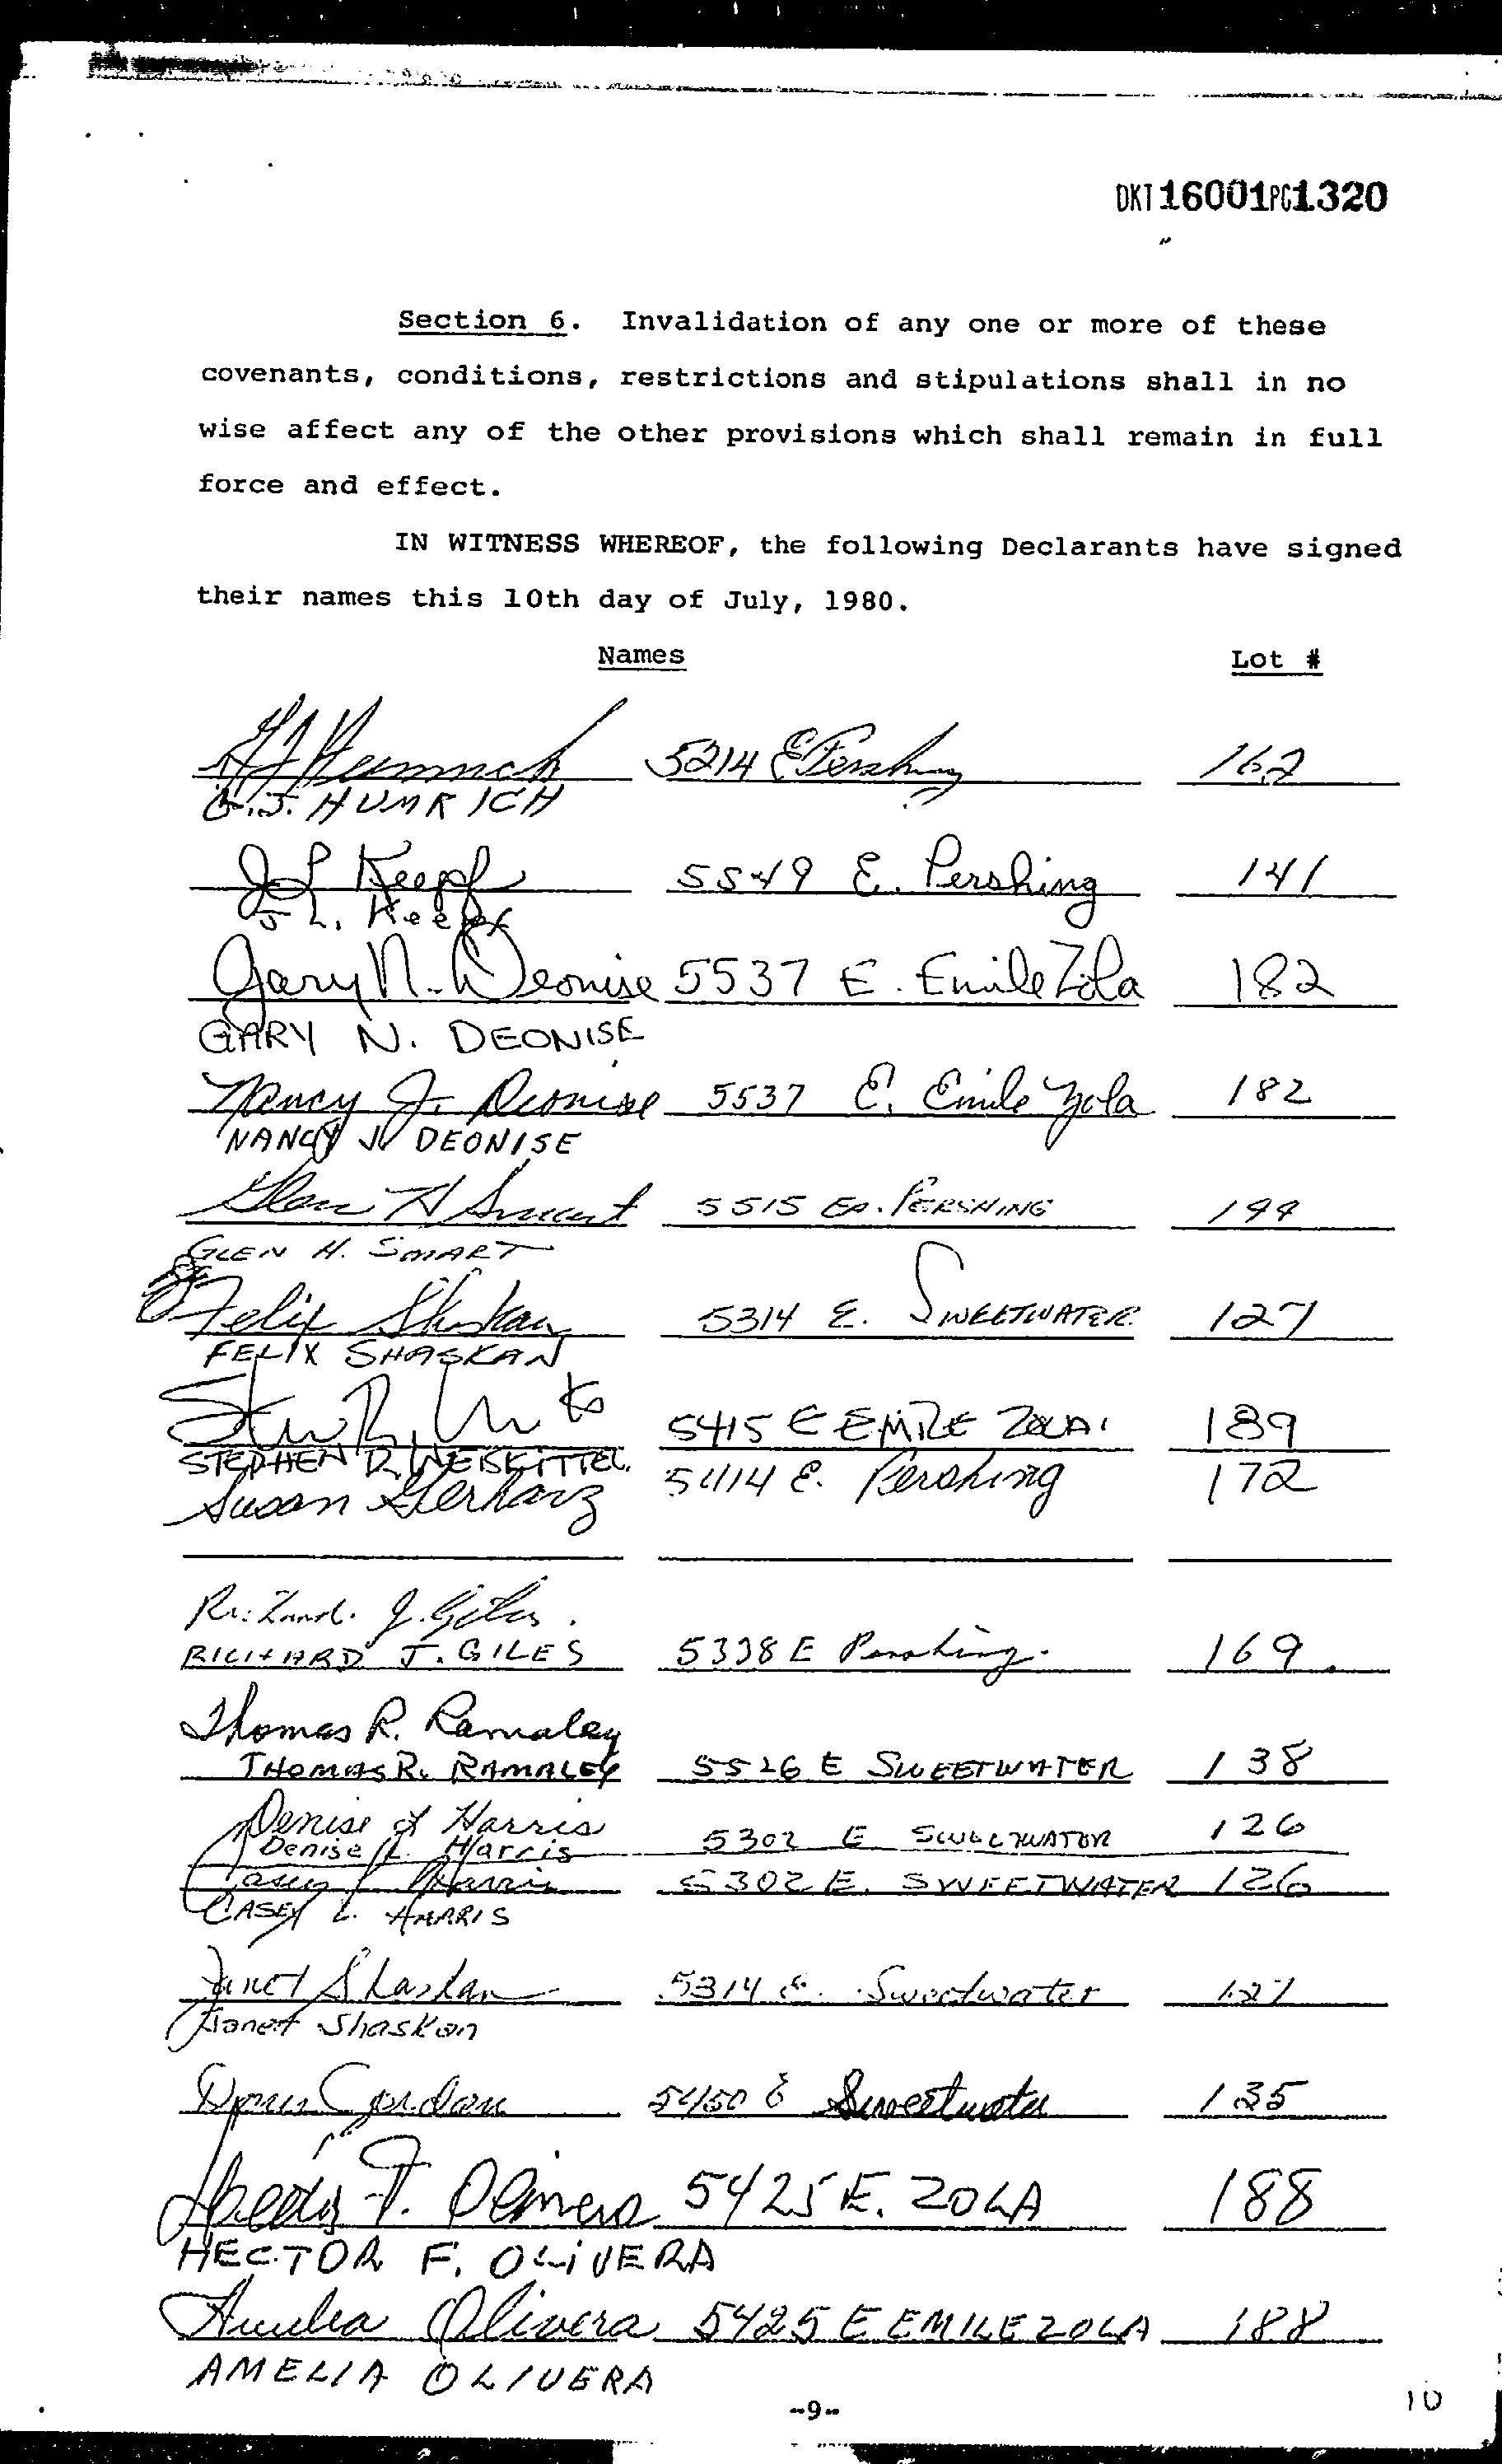 DKT 16001 PG 1320
Section 6. Invalidation of any one or more of these
covenants, conditions, restrictions and stipulations shall in no
wise affect any of the other provisions which shall remain in full
force and effect.
IN WITNESS WHEREOF, the following Declarants have signed
their names this 10th day of July, 1980.
Names Lot #
5214 E Pershing 162
G.J. HUMRICH
J L Keepf 5549 E. Pershing 141
J L. Keepf
Gary N. Deonise 5537 E. Emile Zola 182
GARY N. DEONISE
Nancy J. Deonise 5537 E. Emile Zola 182
NANCY J. DEONISE
Glen H Smart 5515 Ea. PERSHING
GLEN H. SMART
Felix Shaskan 5314 E. SWEETWATER 127
FELIX SHASKAN
5415 E EMILE ZOLA 189
STEPHEN R. WEISKITTEL
Susan Gerharz 5414 E. Pershing 172
Richard J. Giles
RICHARD J. GILES 5338 E Pershing 169
Thomas R. Ramaley
THOMAS R. RAMALEY 5526 E SWEETWATER 138
Denise L Harris
Denise L. Harris 5302 E SWEETWATER 126
Casey L Harris 5302 E. SWEETWATER 126
CASEY L. HARRIS
Janet Shaskan 5314 E. Sweetwater 127
Janet Shaskan
5450 E Sweetwater 135
Hector F. Olivera 5425 E. ZOLA 188
HECTOR F. OLIVERA
Amelia Olivera 5425 E EMILE ZOLA 188
AMELIA OLIVERA
-9-
10